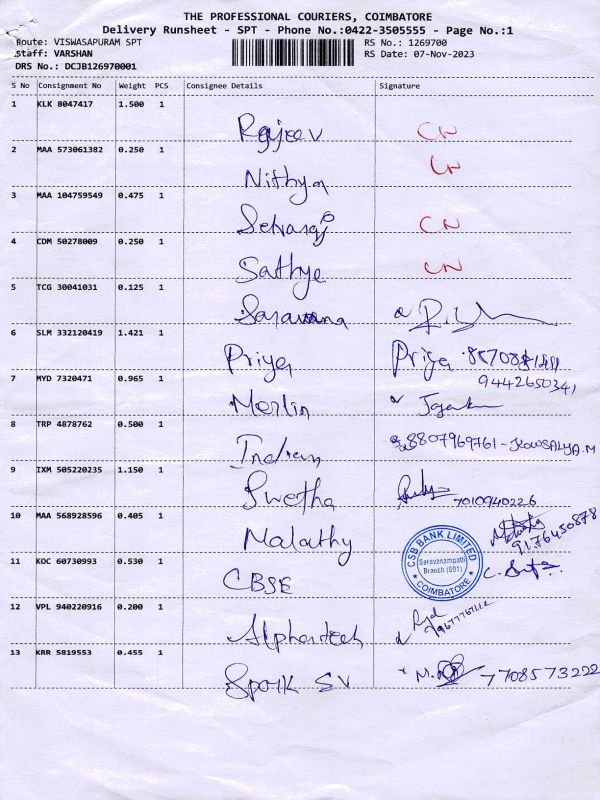 THE PROFESSIONAL COURIERS, COIMBATORE
Delivery Runsheet - SPT - Phone No.:0422-3505555 - Page No.:1
Route: VISWASAPURAM SPT
RS No.: 1269700
Staff: VARSHAN
RS Date: 07-Nov-2023
DRS No.: DCJB126970001
S No Consignment No Weight PCS Consignee Details Signature
1 KLK 8047417 1.500 1
Rajeev CN
2 MAA 573061382 0.250 1
Nithya CN
3 MAA 104759549 0.475 1
Selvaraj CN
4 CDM 50278009 0.250 1
Sathye CN
5 TCG 30041031 0.125 1
Saravana
6 SLM 332120419 1.421 1
Priya Priya
7 MYD 7320471 0.965 1
9442650341
Merlin
8 TRP 4878762 0.500 1
Indian 8807969761 - KOWSALYA.M
9 IXM 505220235 1.150 1
Swetha 7010940226
10 MAA 568928596 0.405 1
Malathy 9176450878
CSB BANK LIMITED
Saravanampatti
Branch (601)
COIMBATORE
11 KOC 60730993 0.530 1
CBSE
12 VPL 940220916 0.200 1
Alphantech
13 KRR 5819553 0.455 1
Spork EV 7708573222